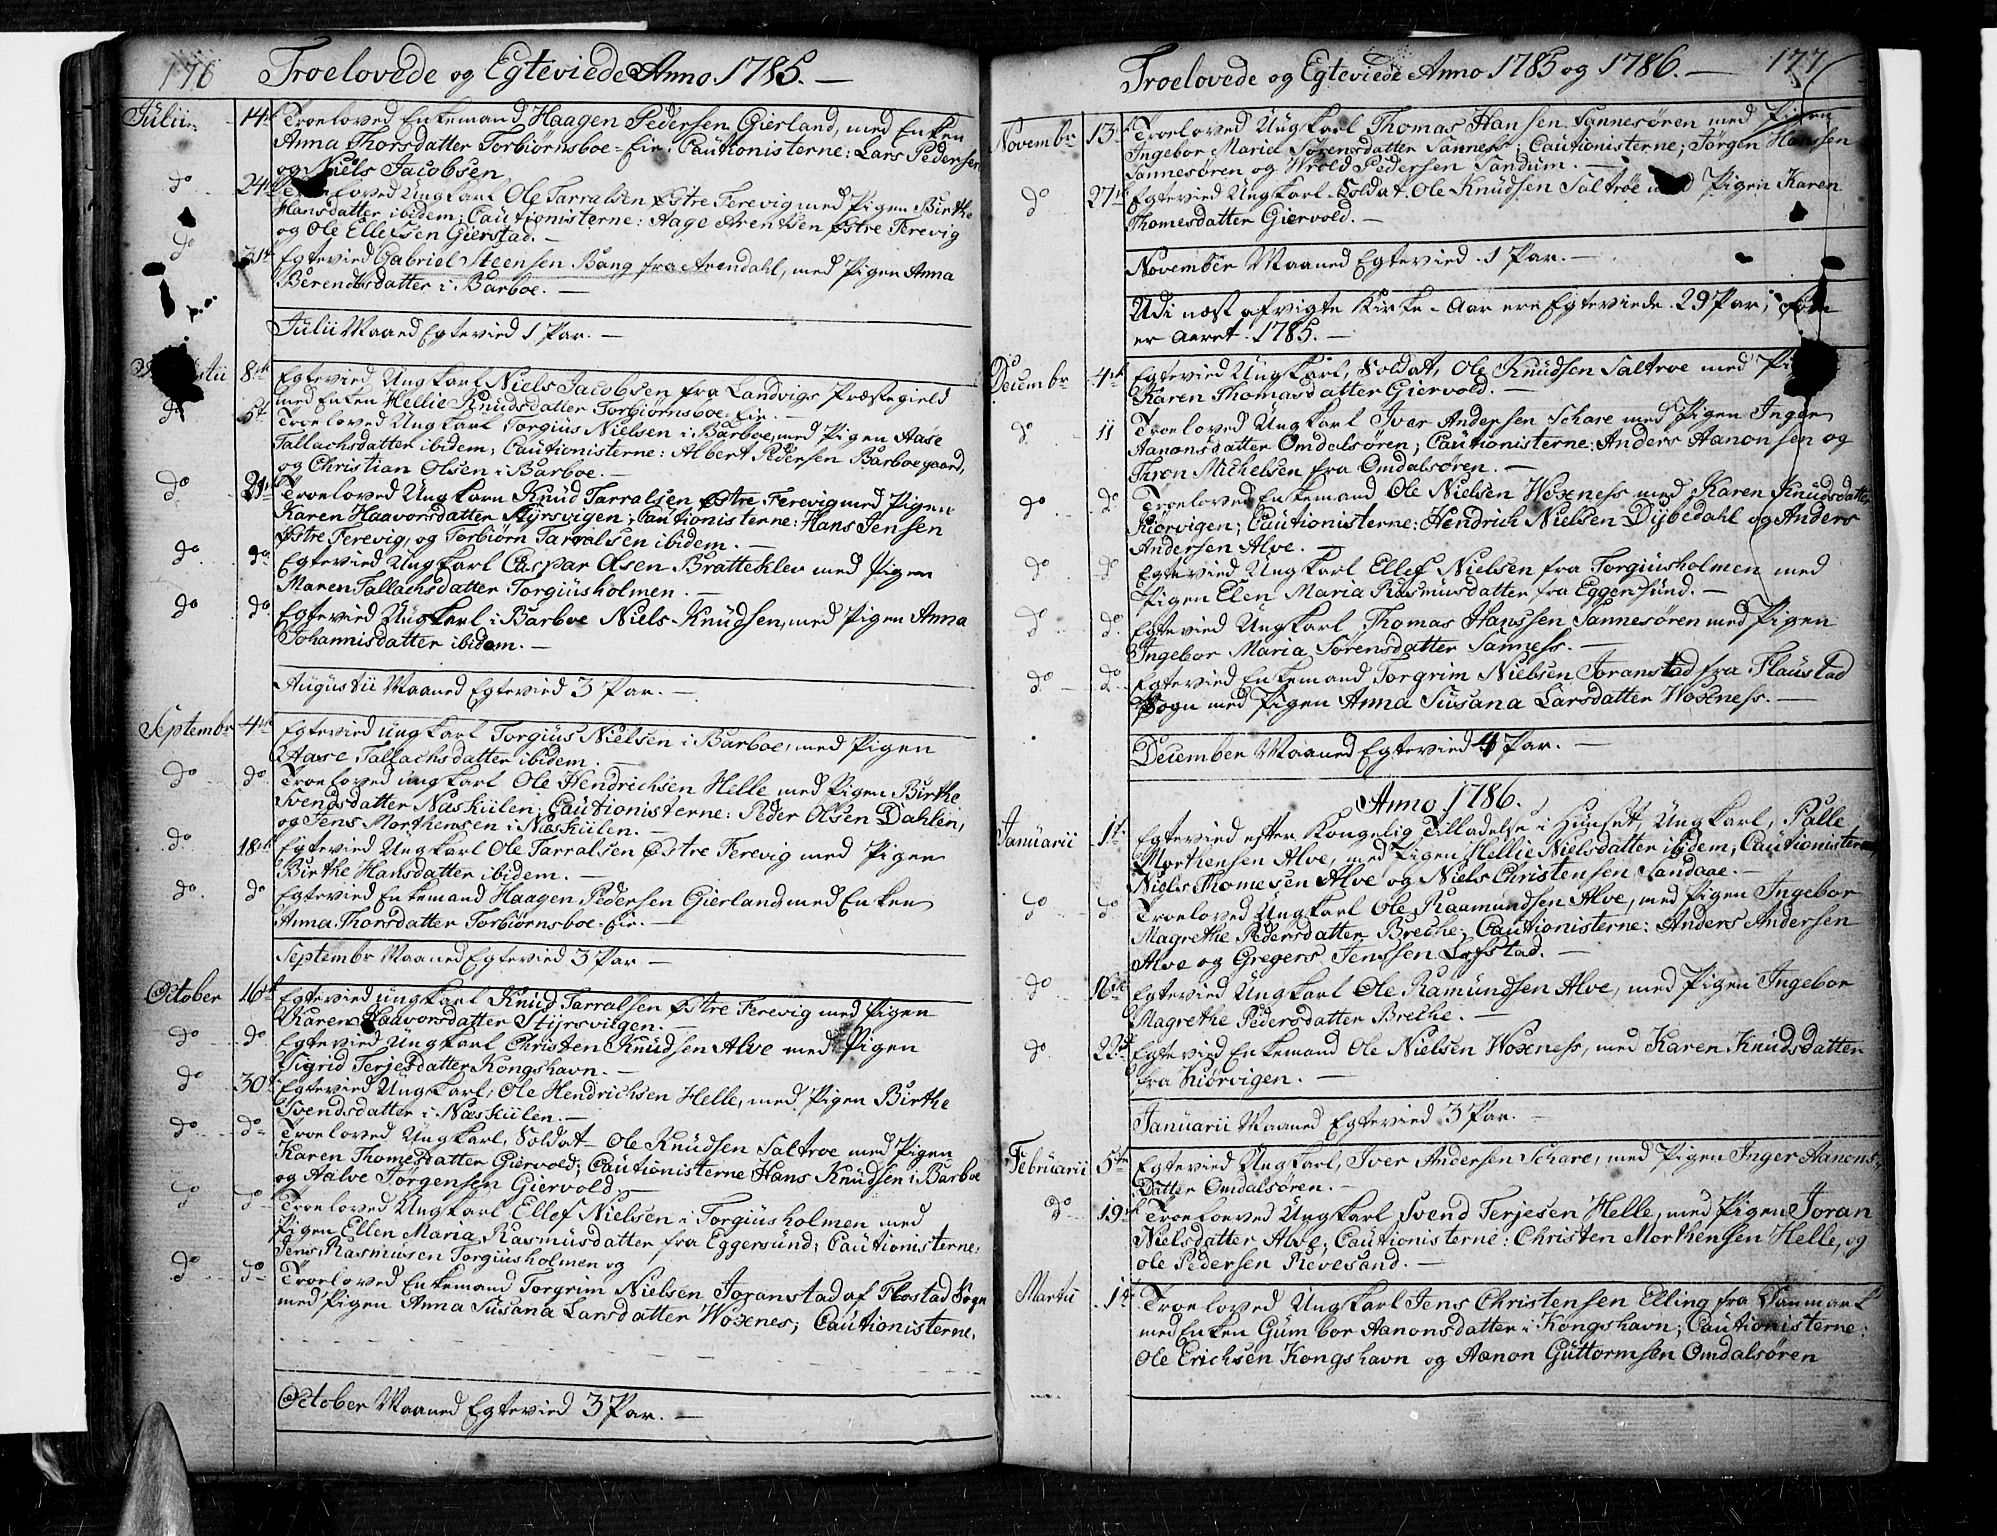 176 Troelovede og Egteviede Anno 1785. —
Julii 14de Troeloved Enkemand Haagen Pedersen Gierland, med Enken
Anna Thorsdatter Torbiørnsboe-Eie: Cautionisterne: Lars Pedersen
og Niels Jacobsen
do 24de Troeloved Ungkarl Ole Tarralsen Østre Ferevig med Pigen Birthe
Hansdatter ibidem; Cautionisterne: Aage Arentsen Østre Ferevig
og Ole Ellefsen Gierstad. —
do 31te Egtevied Gabriel Steensen Bang fra Arendahl, med Pigen Anna
Berendtsdatter i Barboe. —
Julii Maaned Egtevied 1 Par. —
8de Egtevied Ungkarl Niels Jacobsen fra Landvigs Præstegield
med Enken Hellie Knudsdatter Torbiørnsboe-Eie. —
do 5t Troeloved Ungkarl Torgius Nielsen i Barboe, med Pigen Aase
Tallachsdatter ibidem; Cautionisterne: Albert Pedersen Barboegaard,
og Christian Olsen i Barboe. —
do 21de Troeloved Ungkarn Knud Tarralsen Østre Ferevig med Pigen
Karen Haavorsdatter Stÿrsvigen; Cautionisterne: Hans Jensen
Østre Ferevig, og Torbiørn Tarralsen ibidem. —
do do Egtevied Ungkarl Caspar Olsen Bratteklev med Pigen
Maren Tallachsdatter Torgiusholmen. —
do do Egtevied Ungkarl i Barboe Niels Knudsen, med Pigen Anna
Johannisdatter ibidem. —
Augustii Maaned Egtevied 3 Par. —
Septembr 4de Egtevied Ungkarl Torgius Nielsen i Barboe, med Pigen
Aase Tallachsdatter ibidem. —
do do Troeloved Ungkarl Ole Hendrichsen Helle med Pigen Birthe
Svendsdatter Næskiilen; Cautionisterne: Peder Olsen Dahlen,
og Jens Morthensen i Næskiilen. —
do 18de Egtevied Ungkarl Ole Tarralsen Østre Ferevig med Pigen
Birthe Hansdatter ibidem. —
do do Egtevied Enkemand Haagen Pedersen Gierland med Enken
Anna Thorsdatter Torbiørnsboe-Eie. —
Septembr Maaned Egtevied 3 Par. —
October 16de Egtevied Ungkarl Knud Tarralsen Østre Ferevig med Pigen
Karen Haavorsdatter Stijrsvigen. —
do do Egtevied Ungkarl Christen Knudsen Alve med Pigen
Sigrid Terjesdatter Kongshavn. —
do 30te Egtevied Ungkarl, Ole Hendrichsen Helle, med Pigen Birthe
Svendsdatter i Næskiilen. —
do do Troeloved Ungkarl, Soldat Ole Knudsen Saltroe med Pigen
Karen Thomesdatter Giervold; Cautionisterne Hans Knudsen i Barboe
og Aalve Jørgensen Giervold. —
do do Troeloved Ungkarl Ellef Nielsen i Torgiusholmen med
Pigen Ellen Maria Rasmusdatter fra Eggersund; Cautionisterne:
Jens Rasmusen Torgiusholmen og
do do Troeloved Enkemand Torgrim Nielsen Joranstad af Flostad Sogn
med Pigen Anna Susana Larsdatter Woxenes; Cautionisterne,
October Maaned Egtevied 3 Par. —
Troelovede og Egteviede Anno 1785 og 1786. — 177
Novembr 13de Troeloved Ungkarl Thomas Hansen Sannesøren med Pigen
Ingebor Maria Sørensdatter Sanness; Cautionisterne; Jørgen Hanssen
Sannesøren og Wrold Pedersen Sandum. —
do 27de Egtevied Ungkarl Soldat Ole Knudsen Saltrøe med Pigen Karen
Thomesdatter Giervold. —
November Maaned Egtevied 1 Par. —
Udi næst afvigte Kirke-Aar ere Egteviede 29 Par; som
er Aaret 1785. —
Decembr 4de Egtevied Ungkarl, Soldat, Ole Knudsen Saltroe med
Karen Thomasdatter Giervold. —
do 11 Troeloved Ungkarl Iver Andersen Schare med Pigen Inger
Aanonsdatter Omdalsøren; Cautionisterne: Anders Aanonsen og
Thron Michelsen fra Omdalsøren. —
do do Troeloved Enkemand Ole Nielsen Woxness med Karen Knudsdatter
Kiørvigen; Cautionisterne: Hendrich Nielsen Dybedahl og Anders
Andersen Alve. —
do do Egtevied Ungkarl Ellef Nielsen fra Torgiusholmen med
Pigen Elen Maria Rasmusdatter fra Eggersund. —
do do Egtevied Ungkarl Thomas Hanssen Sannesøren med Pigen
Ingebor Maria Sørensdatter Sanness. —
do do Egtevied Enkemand Torgrim Nielsen Joranstad fra Flaustad
Sogn med Pigen Anna Susana Larsdatter Woxness. —
December Maaned Egtevied 4 Par. —
Anno 1786.
Januarii 1t Egtevied efter Kongelig Tilladelse i Huuset Ungkarl, Palle
Morthensen Alve, med Pigen Hellie Nielsdatter ibidem; Cautionisterne
Niels Thomesen Alve og Niels Christensen Sandaae. —
do do Troeloved Ungkarl Ole Raamundsen Alve, med Pigen Ingebor
Magrethe Pedersdatter Breche; Cautionisterne: Anders Andersen
Alve og Gregers Jenssen Lofstad. —
do 16de Egtevied Ungkarl Ole Ramundsen Alve, med Pigen Ingebor
Magrethe Pedersdatter Breche. —
do 22de Egtevied Enkemand Ole Nielsen Woxness, med Karen Knudsdatter
fra Kiørvigen. —
Januarii Maaned Egtevied 3 Par. —
Februarii 5te Egtevied Ungkarl, Iver Andersen Schare, med Pigen Inger Aanons-
Datter Omdalsøren. —
do 19de Troeloeved Ungkarl Svend Terjesen Helle, med Pigen Joran
Nielsdatter Alve; Cautionisterne: Christen Morthensen Helle, og
Ole Pedersen Revesand. —
Martii 1t Troeloved Ungkarl Jens Christensen Elling fra Danmark
med Enken Gumbor Aanonsdatter i Kongshavn; Cautionisterne:
Ole Erichsen Kongshavn og Aanon Guttormsen Omdalsøren